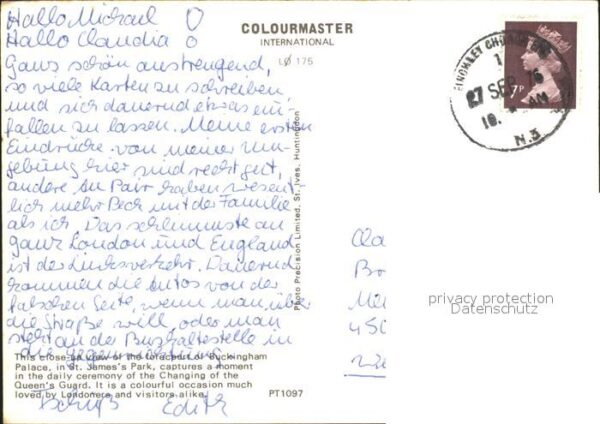 Hallo Michael
Hallo Claudia
Ganz schön anstrengend,
so viele Karten zu schreiben
und sich dauernd etwas ein-
fallen zu lassen. Meine ersten
Eindrücke von meiner Um-
gebung hier sind recht gut,
andere Au Pair haben wesent-
lich mehr Pech mit der Familie
als ich. Das schlimmste an
ganz London und England
ist der Linksverkehr. Dauernd
kommen die Autos von der
falschen Seite, wenn man über
die Straße will oder man
steht an der Bushaltestelle in
die Gegenrichtung.
Tschüß Edith
COLOURMASTER
INTERNATIONAL
LØ 175
Photo Precision Limited, St. Ives, Huntingdon
This close-up view of the forecourt of Buckingham
Palace, in St. James's Park, captures a moment
in the daily ceremony of the Changing of the
Queen's Guard. It is a colourful occasion much
loved by Londoners and visitors alike.
PT1097
FINCHLEY CHURCH
27 SEP 76
N.3
7P
Cla
Bo
450
privacy protection
Datenschutz